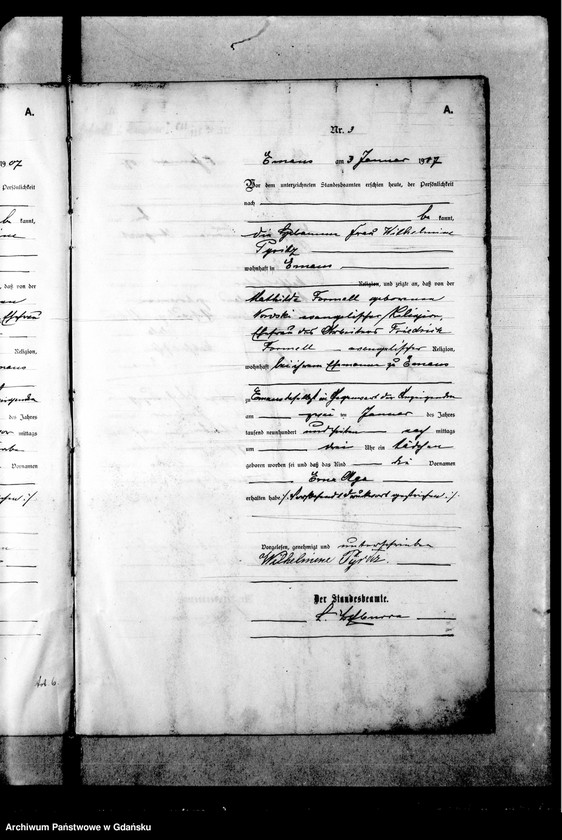 A.
A.
Nr. 3
Emaus am 3 Januar 1907
Vor dem unterzeichneten Standesbeamten erschien heute, der Persönlichkeit
nach
be kannt,
die Hebamme Frau Wilhelmine
Pyritz
wohnhaft in Emaus
Religion, und zeigte an, daß von der
Mathilde Formell geborenen
evangelischer Religion,
Ehefrau des Arbeiters Friedrich
Formell evangelischer Religion,
wohnhaft bei ihrem Ehemanne zu Emaus
zu Emaus daselbst in Gegenwart der Anzeigenden
am zwei ten Januar des Jahres
tausend neunhundert und sieben nach mittags
um drei Uhr ein Mädchen
geboren worden sei und daß das Kind die Vornamen
Erna Olga
erhalten habe /: Vorstehendes Druckwort gestrichen :/
Vorgelesen, genehmigt und unterschrieben
Wilhelmine Pyritz
Der Standesbeamte.
1907
Persönlichkeit
be kannt,
daß von der
Ehefrau
Religion,
des Jahres
mittags
Vornamen
Archiwum Państwowe w Gdańsku